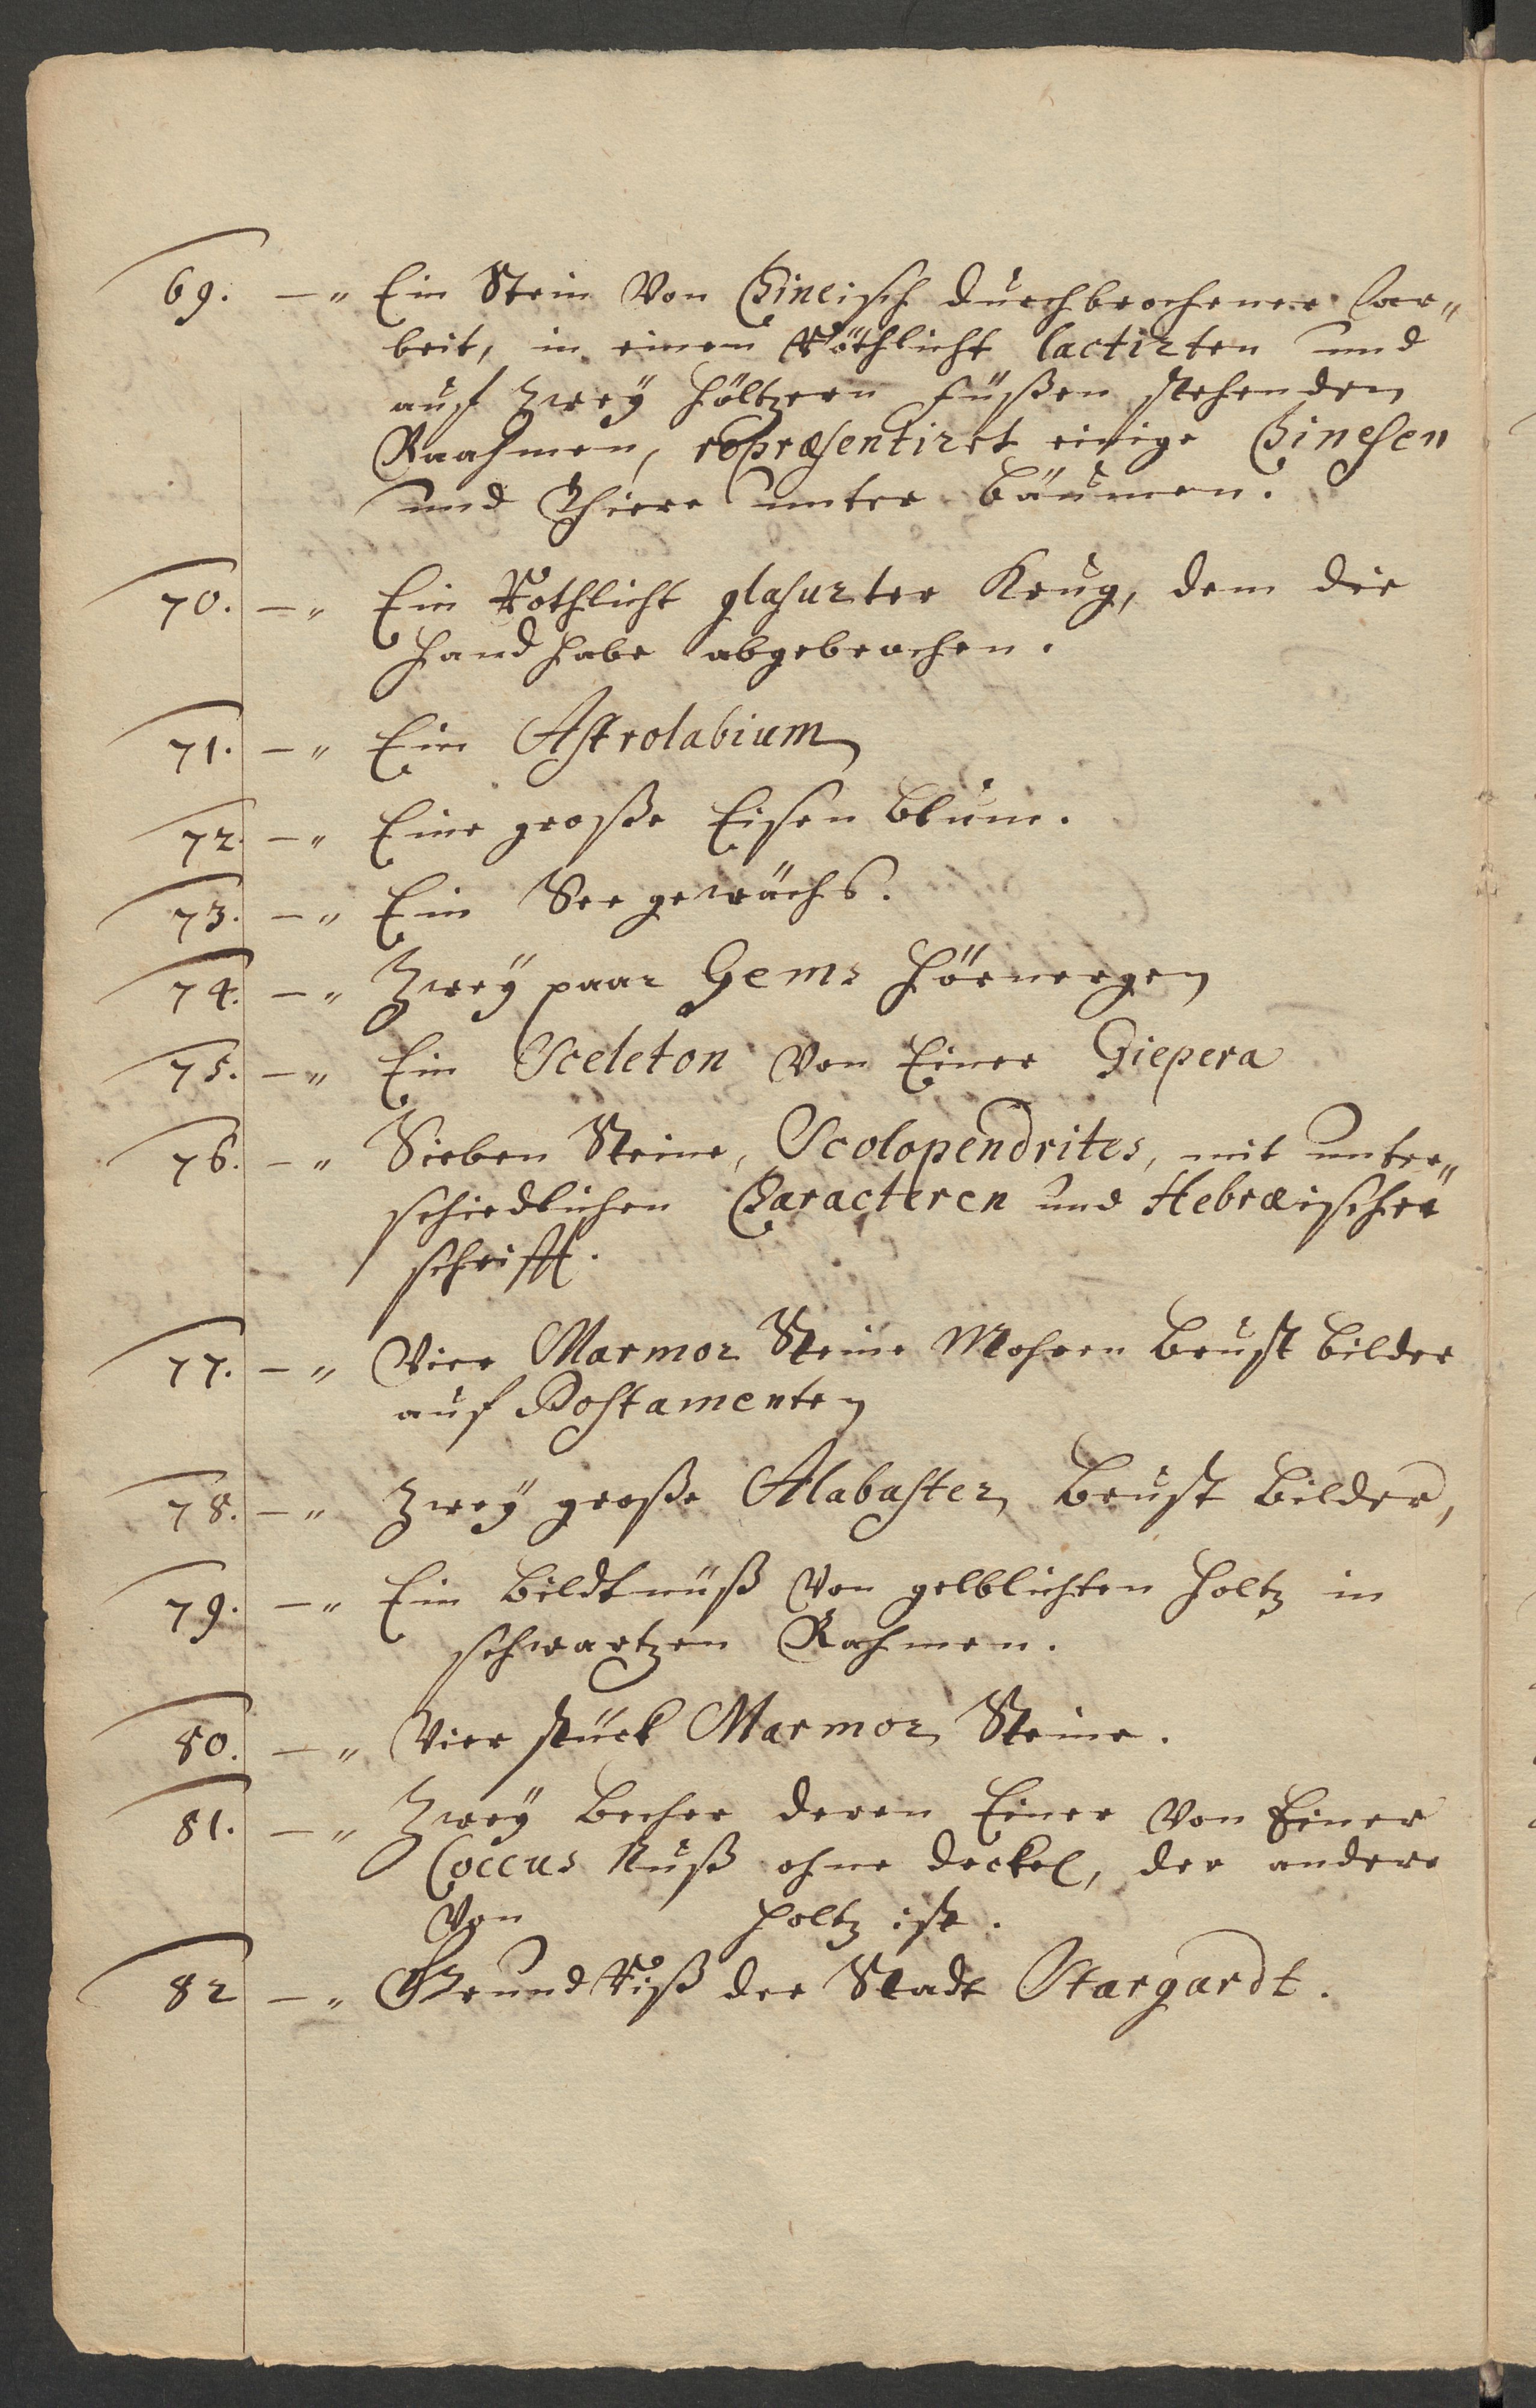 69. —„ Ein Stein Von Chineisch durchbrochener ar„
beit, in einem Röthlicht lactirten und
auf Zweÿ höltzern füßen stehenden
Raahmen, repræsentiret einige Chinesen
und Thiere unter bäumen.
70. —„ Ein Rothlicht glasurter Krug, dem die
Handhabe abgebrochen.
71. —„ Ein Astrolabium
72. —„ Eine große Eisen blum.
73. —„ Ein See gewächs.
74. —„ Zweÿ paar Gems Hörnergen
75. —„ Ein Sceleton Von Einer Diepera
76. —„ Sieben Steine, Scolopendrites, mit unter„
schiedlichen Characteren und Hebræischer
schrifft.
77. —„ Vier Marmor Steine Mohren Brust bilder
auf Postamenten
78. —„ Zweÿ große Alabaster Brust Bilder,
79. —„ Ein bildtnüß Von gelblichten Holtz in
schwartzen Rahmen.
80. —„ Vier stück Marmor Steine.
81. —„ Zweÿ Becher deren Einer Von Einer
Coccus Nuß ohne deckel, der andere
Von Holtz ist.
82 —„ Grund Riß der Stadt Stargardt.